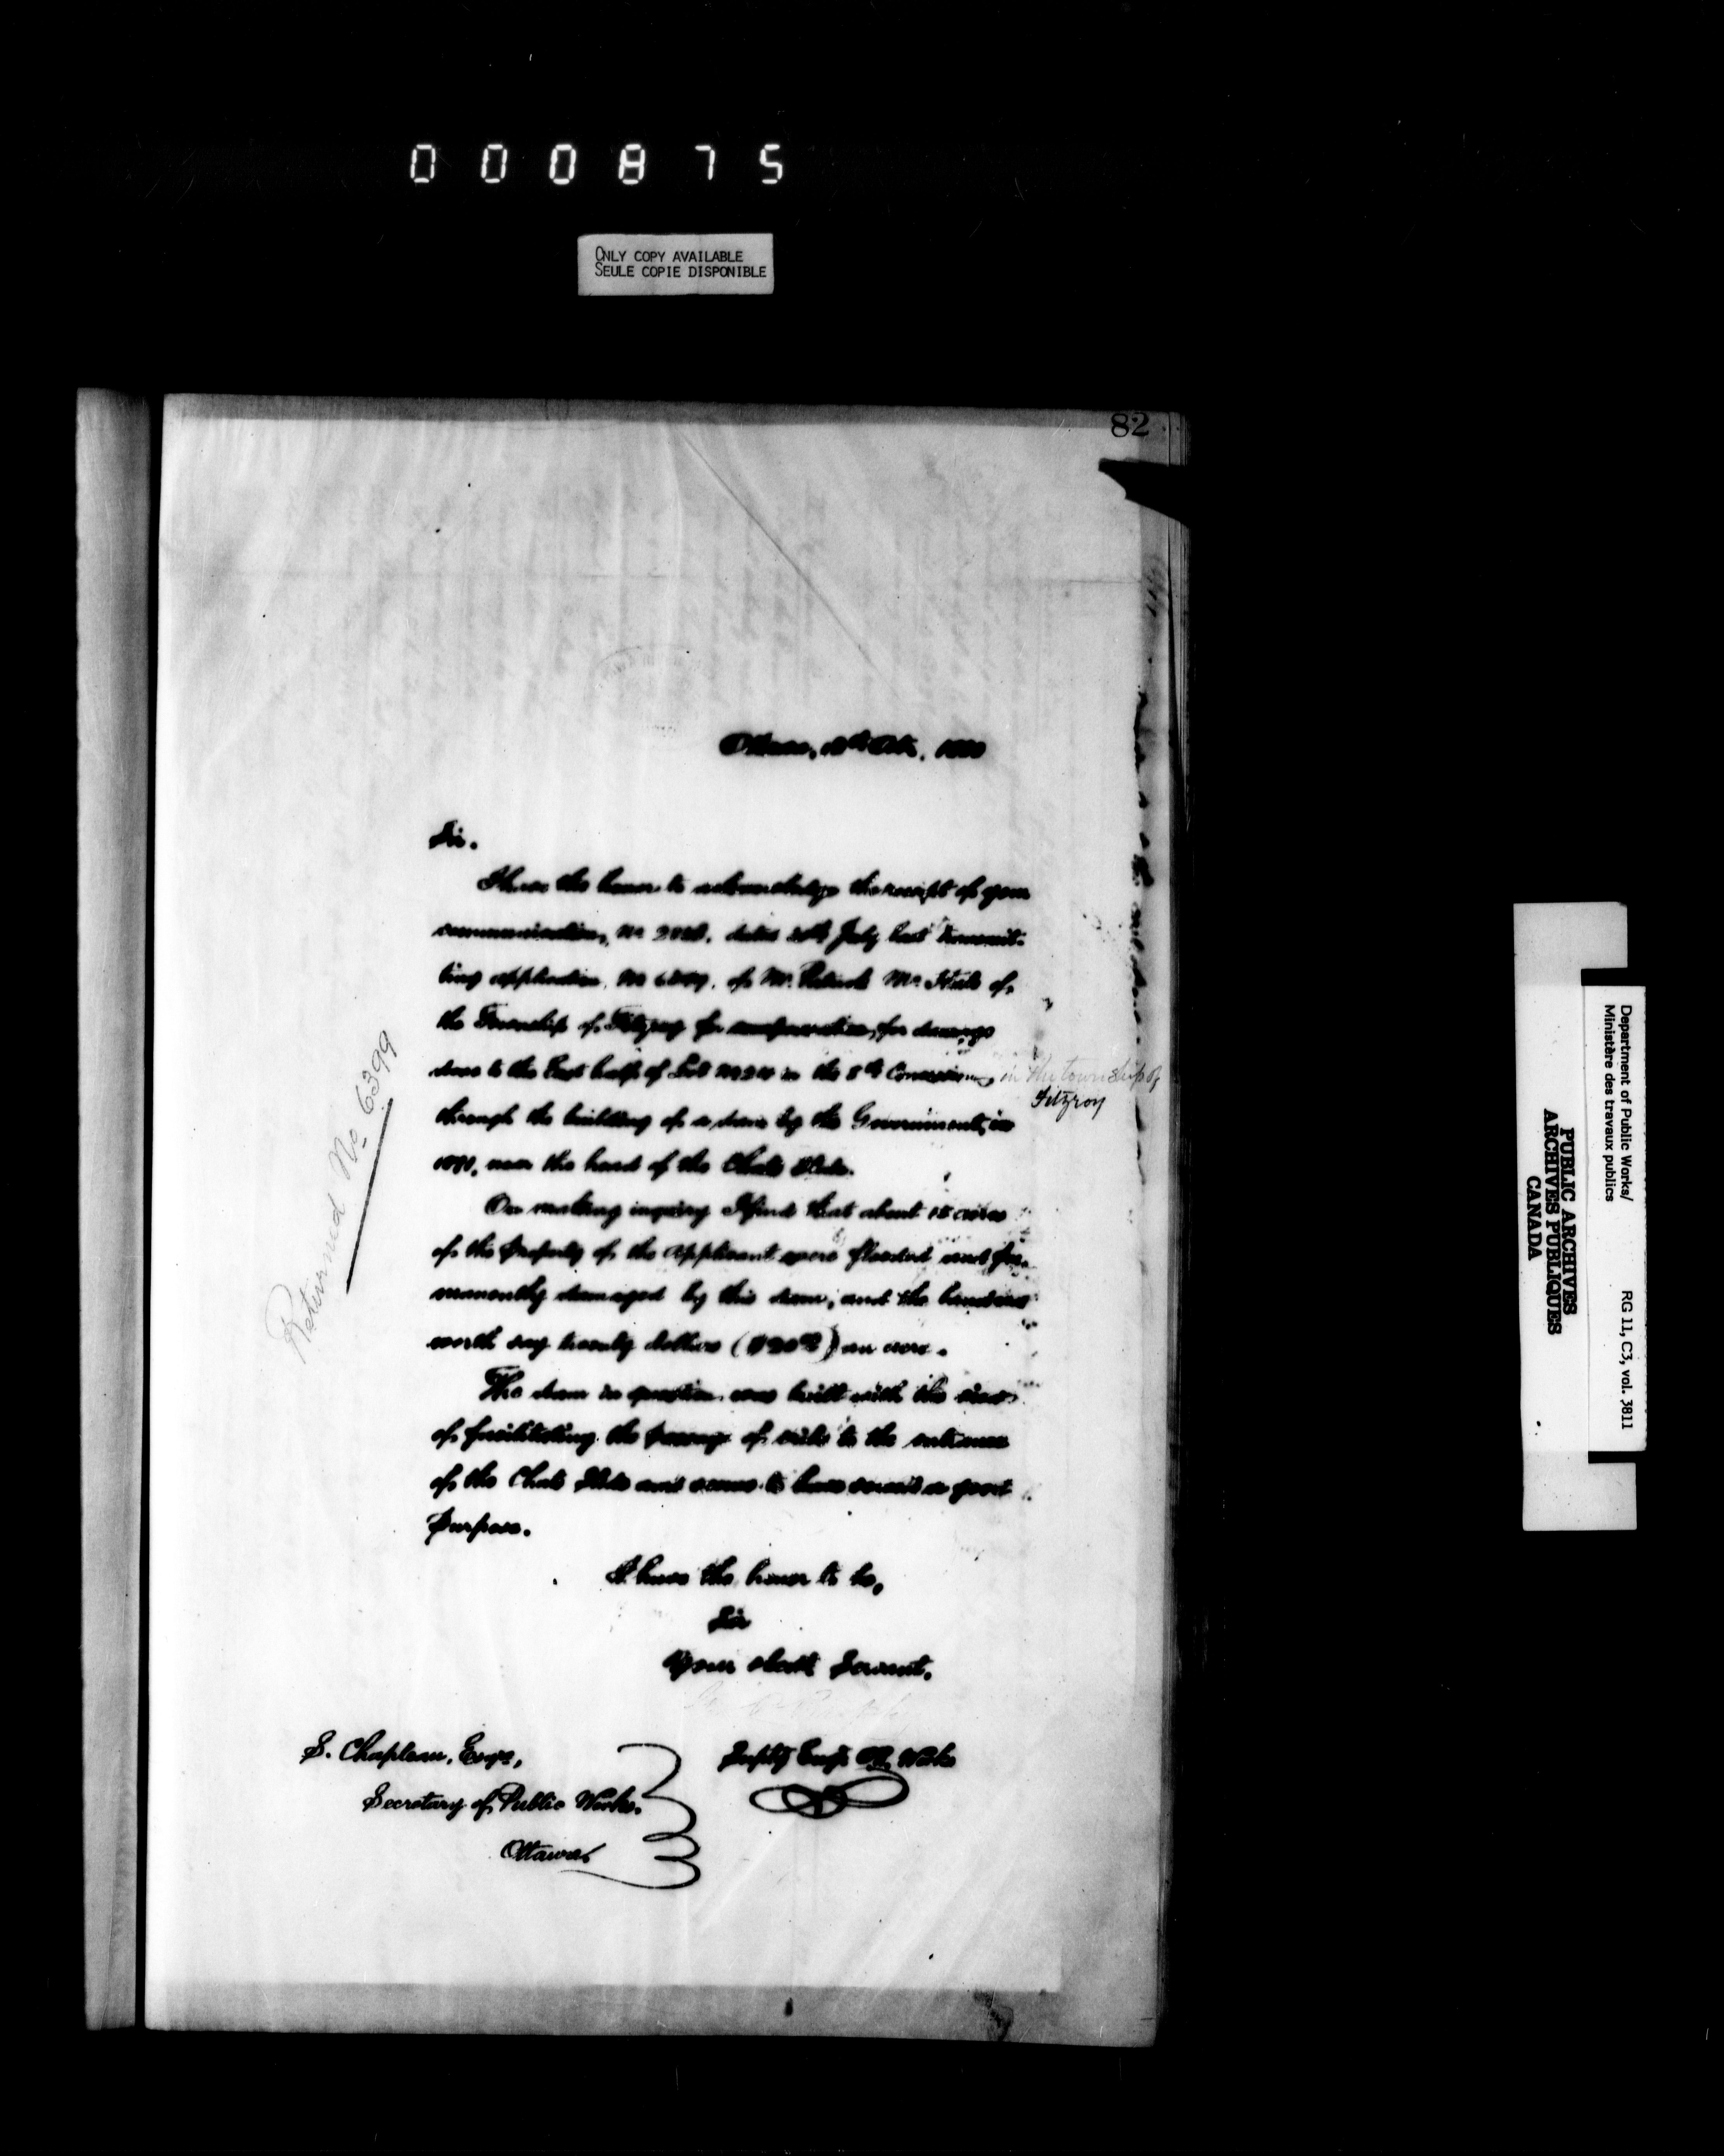 000875
ONLY COPY AVAILABLE
SEULE COPIE DISPONIBLE
82
Ottawa, 1880
Sir.
I have the honor to acknowledge the receipt of your
communication, No dated July last transmit-
ting application, No of Mr. Patrick Mc of
the Township of Fitzroy for compensation, for damage
done to the East half of Lot No in the 8th Concession, in the township of
Fitzroy
through the building of a dam by the Government, in
near the head of the Chats Slide.
On making inquiry I find that about 15 acres
of the property of the applicant were flooded and per-
manently damaged by this dam, and the land was
worth say twenty dollars ($20.00) an acre.
The dam in question was built with the view
of facilitating the passage of cribs to the entrance
of the Chats Slide and seems to have served a good
purpose.
I have the honor to be,
Sir
Your obedt Servant,
Deputy Engr. P. Works
S. Chapleau, Esqre,
Secretary of Public Works.
Ottawa
Returned No 6399
Department of Public Works/
Ministère des travaux publics
RG 11, C3, vol. 3811
PUBLIC ARCHIVES
ARCHIVES PUBLIQUES
CANADA